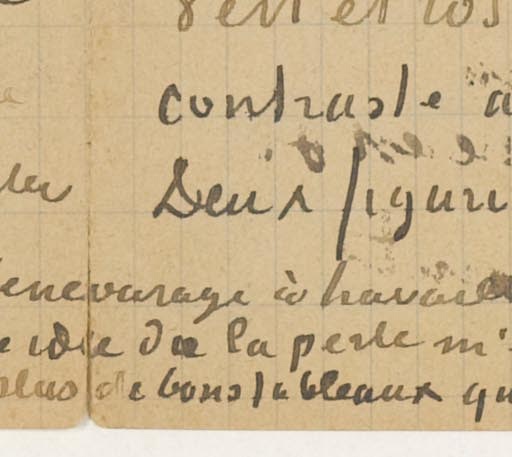 vert et ros
contraste a
Deux figure
encourage à travaill
idée de la perte m'
plus de bons tableaux qu